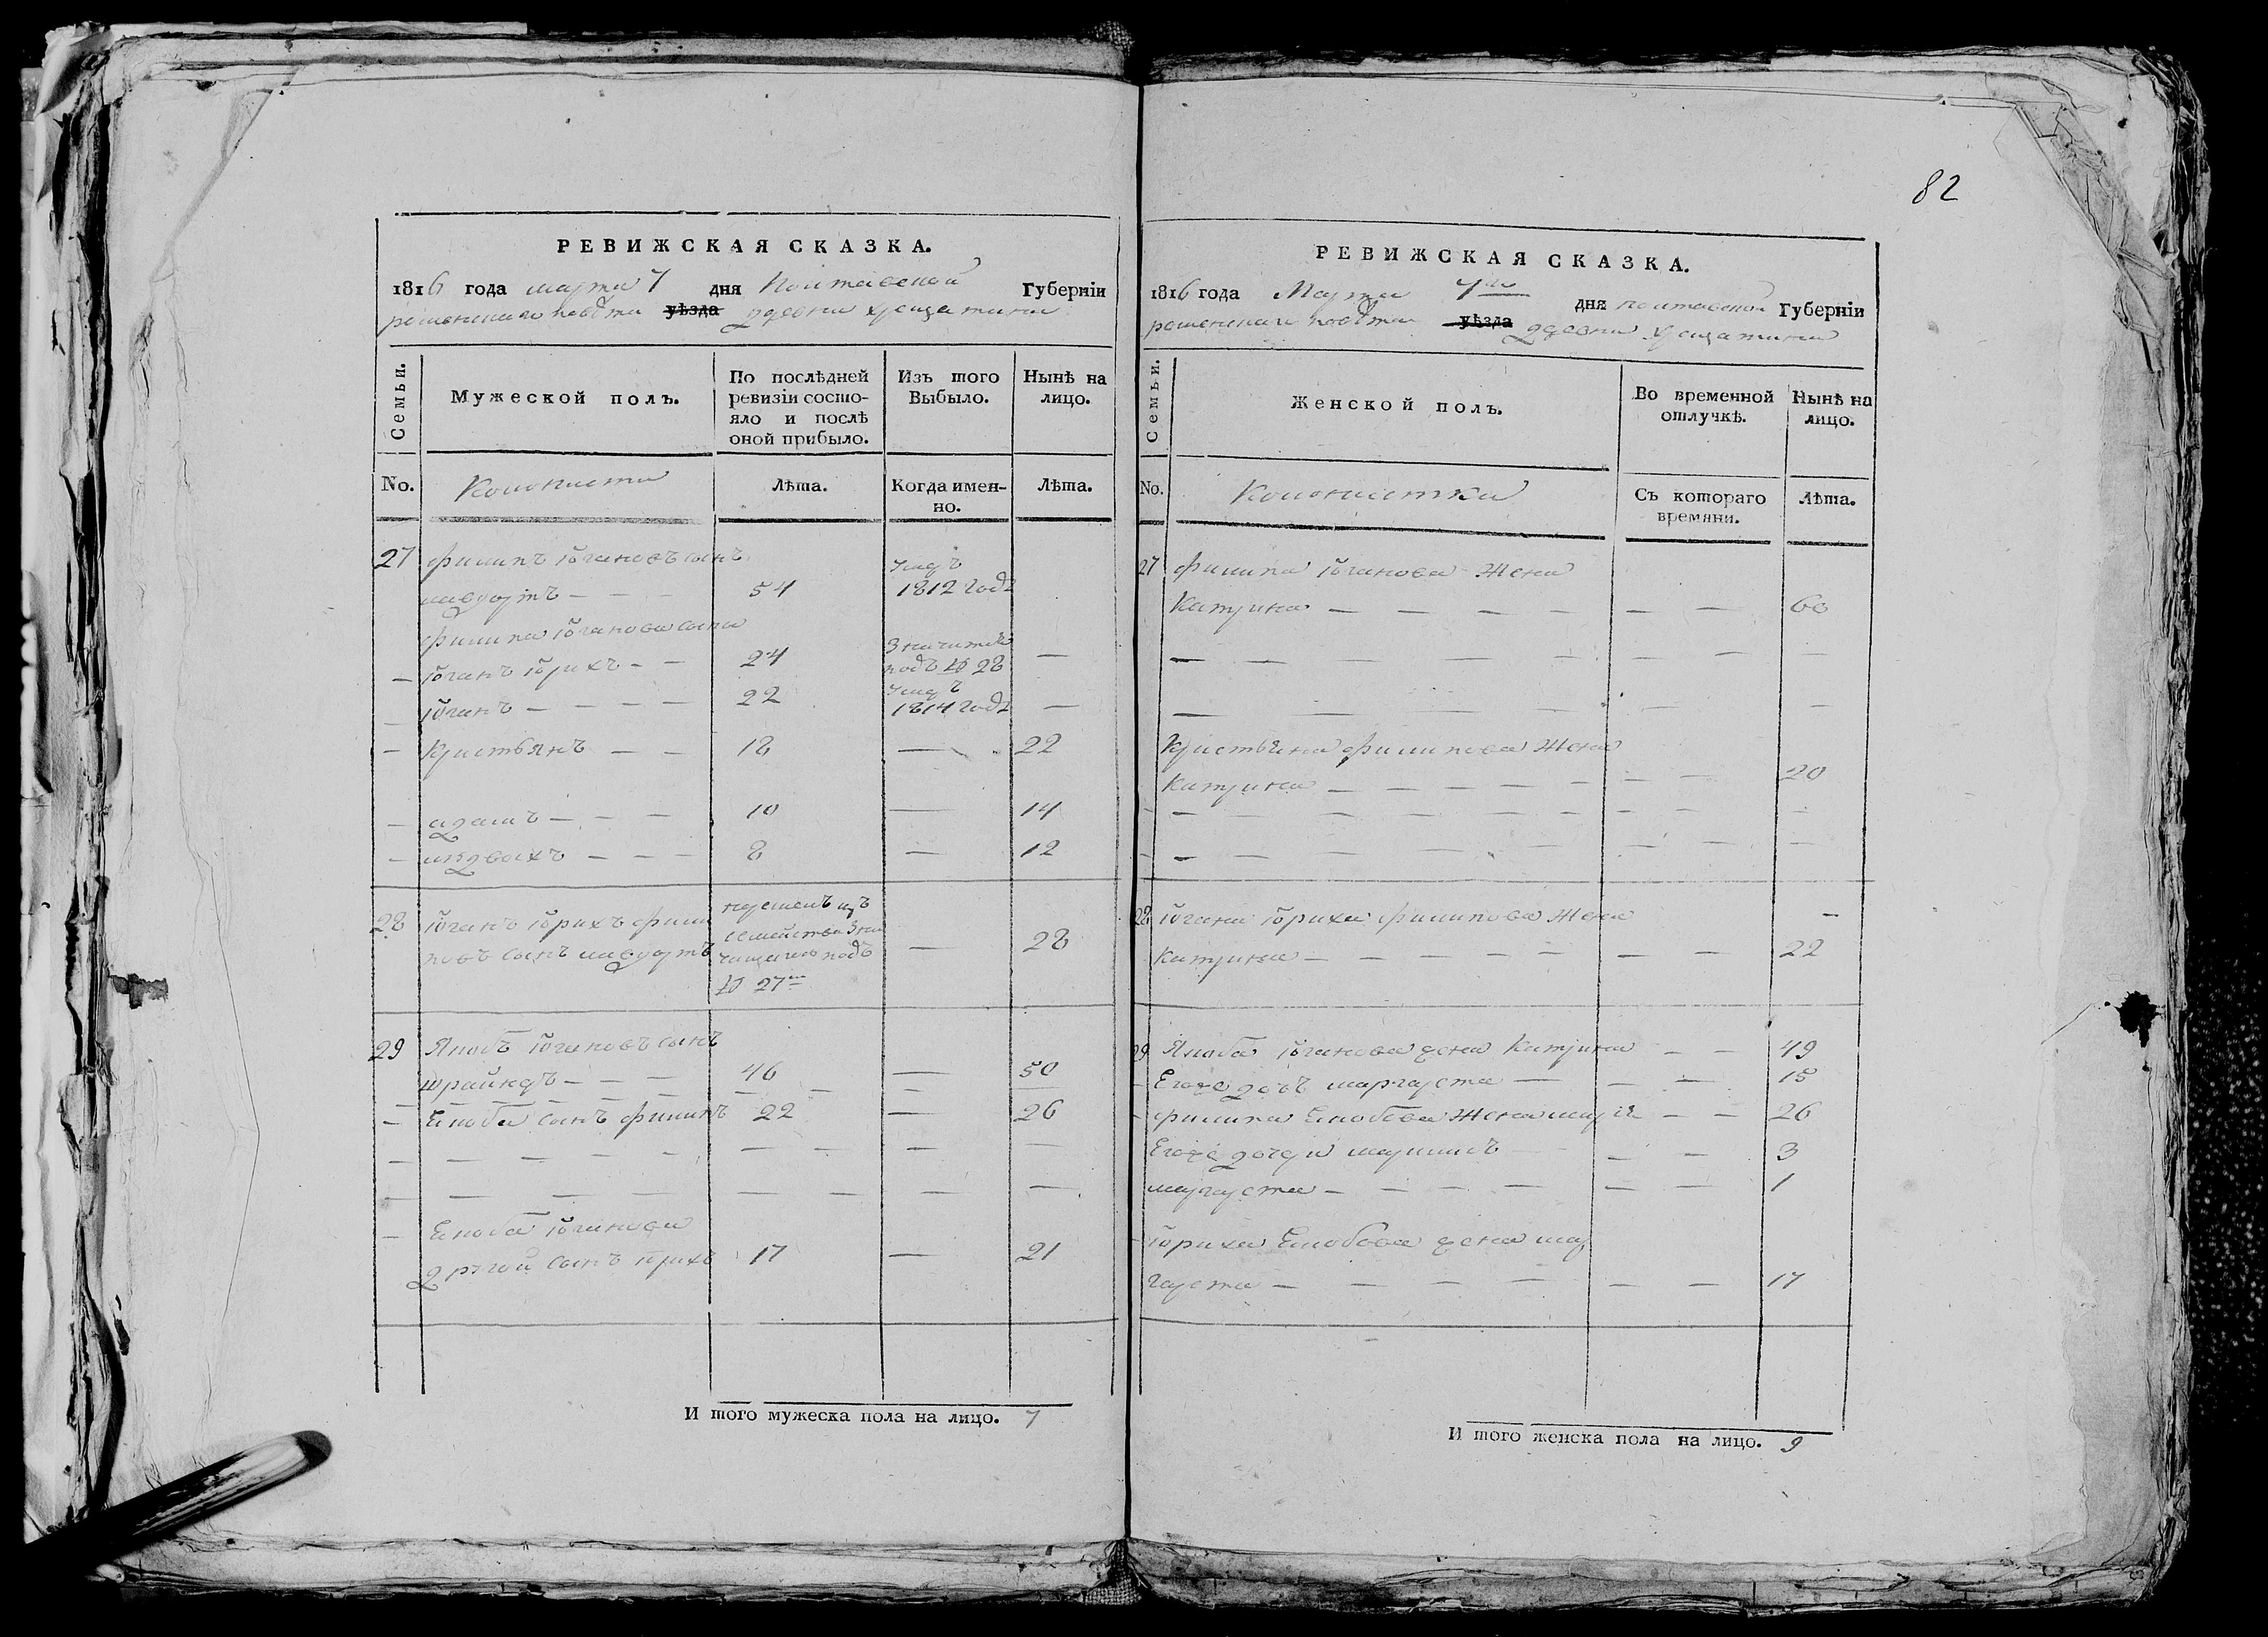 82
РЕВИЖСКАЯ СКАЗКА.
1816 года марта 7 дня Полтавской Губерніи
роменскаго повѣта уѣзда
Семьи.
Мужеской полъ.
По послѣдней ревизіи состо-
яло и послѣ
оной прибыло.
Изъ того
Выбыло.
Нынѣ на
лицо.
No.
Колонисты
Лѣта.
Когда имен-
но.
Лѣта.
27 филипъ іогановъ сынъ
54
1812 годѣ
филипа іоганова сына
— іоганъ іорихъ — — 24 подъ № 28 —
— іоганъ — — — — 22 1814 годѣ —
— Кристьянъ — — 18 — 22
— адамъ — — — 10 — 14
— людвыхъ — — — 8 — 12
28 іоганъ іорихъ фили
повъ сынъ
семейства
подъ
— 28
№ 27м
29 Якобъ іогановъ сынъ
46 — 50
— Якоба сынъ филипъ 22 — 26
— Якоба іоганова
другой сынъ іорихъ 17 — 21
И того мужеска пола на лицо. 7
РЕВИЖСКАЯ СКАЗКА.
1816 года Марта 7го дня полтавской Губерніи
роменскаго повѣта уѣзда
Семьи.
Женской полъ.
Во временной
отлучкѣ.
Нынѣ на
лицо.
No.
Колонистки
Съ котораго
времяни.
Лѣта.
27 филипа іоганова жена
Катрина — — — — — — — 60
Кристьяна филипова жена
Катрина — — — — — — — 20
28 іогана іориха филипова жена
Катрина — — — — — — — 22
29 Якоба іоганова жена Катрина — — 49
Егоже дочь маргарета — — — 15
филипа Якобова жена марія — — 26
Егоже дочери — — 3
маргарета — — — — — — 1
іориха Якобова жена мар
гарета — — — — — — — 17
И того женска пола на лицо. 9